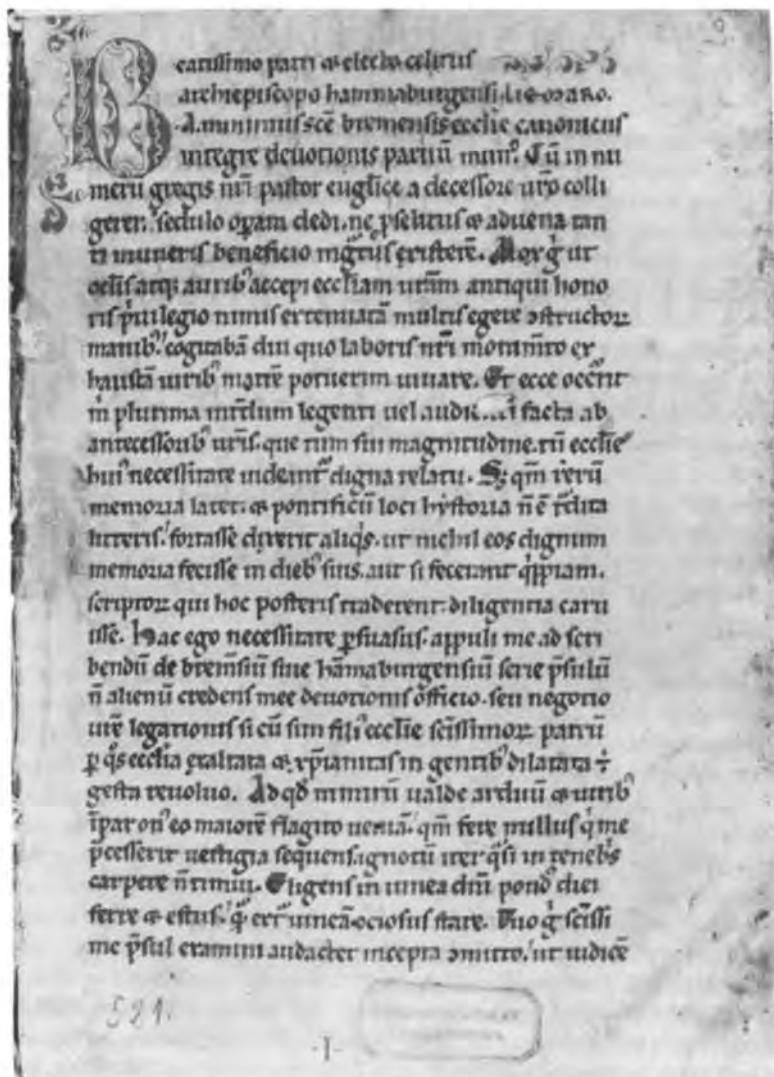 Beatissimo patri ⁊ electo celitus
archiepiscopo hammaburgensi. liemaro.
A. minimus scē bremensis ecclīe canonicus
integre deuotionis paruū mun⁹. Cū in nu
meru gregis nr̄i pastor euglīce a decessore ur̄o colli
gerer. sedulo op̄am dedi. ne p̄selitus ⁊ aduena tan
ti muneris beneficio ingr̄tus existerē. Mox g̊ ut
oclīs atq; aurib⁹ accepi eccl̄iam ur̄am antiqui hono
ris p̄uilegio nimis extenuatā multis egere ɔstructoꝝ
manib⁹. cogitabā diu quo laboris nr̄i monim̄to ex
haustā uirib⁹ matrē potuerim iuuare. Et ecce occr̄it
m̄ plurima int̄dum legenti uel facta ab
antecessorib⁹ ur̄is. que tum sui magnitudine. tū ecclīe
hui⁹ necessitate uident̄ digna relatu. Sꝫ qm̄ rerū
memoria latet. ⁊ pontificū loci hystoria n̄ ē t̄dita
litteris. fortasse dixerit aliq̄s. ut nichil eos dignum
memoria fecisse in dieb⁹ suis. aut si fecerant q̄ppiam.
scriptoꝝ qui hoc posteris traderent. diligentia caru
isse. Hac ego necessitate p̄suasus. appuli me ad scri
bendū de brem̄siū siue hāmaburgensiū serie p̄sulū
n̄ alienū credens mee deuotionis officio. seu negotio
ur̄e legationis si cū sim fili⁹ ecclīe sc̄issimoꝝ patrū
ꝑ q̄s eccl̄ia exaltata ⁊ xp̄ianitas in gentib⁹ dilatata ē
gesta reuoluo. Ad qd̄ nimirū ualde arduū ⁊ uirib⁹
īpar on⁹ eo maiorē flagito ueniā. qm̄ fere nullus q̇ me
p̄cesserit uestigia sequens. ignotū iter q̄si in tenebr̄s
carpere n̄ timui. Eligens in uinea dn̄i pond⁹ diei
ferre ⁊ estus. q̄ ext̄ uineā ociosus stare. Tuo g̊ sc̄issi
me p̄sul examini audacter incepta ɔmitto. ut iudicē
521.
·1·